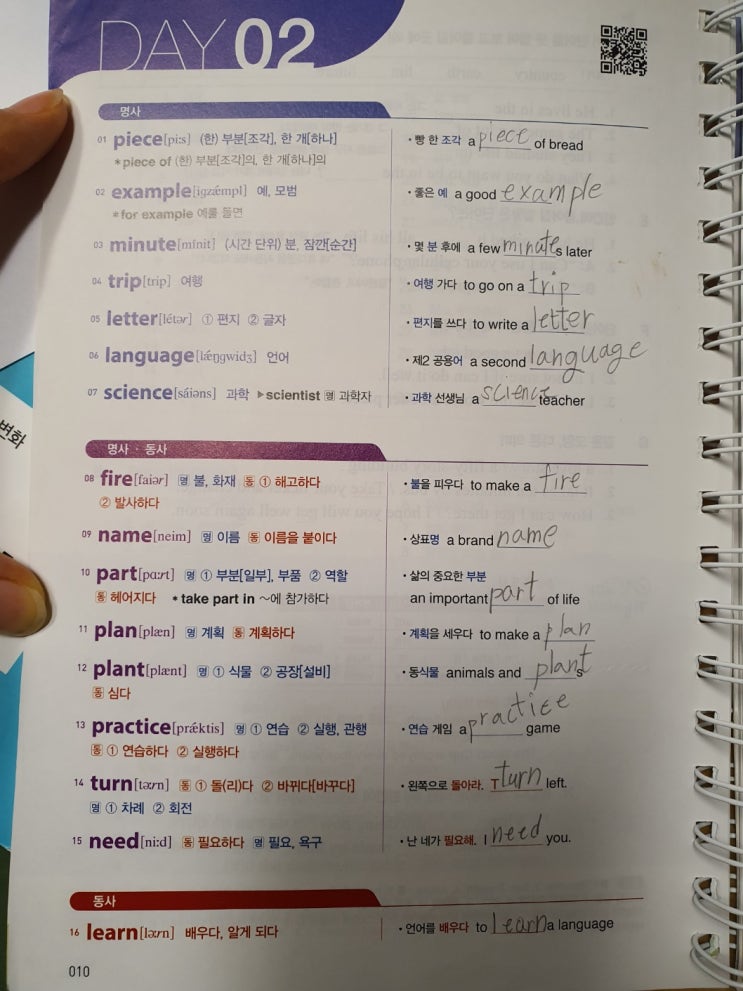 DAY 02
명사
01 piece[piːs] (한) 부분[조각], 한 개[하나]
*piece of (한) 부분[조각]의, 한 개[하나]의
• 빵 한 조각 a piece of bread
02 example[iɡzǽmpl] 예, 모범
*for example 예를 들면
• 좋은 예 a good example
03 minute[mínit] (시간 단위) 분, 잠깐[순간]
• 몇 분 후에 a few minutes later
04 trip[trip] 여행
• 여행 가다 to go on a trip
05 letter[létər] ① 편지 ② 글자
• 편지를 쓰다 to write a letter
06 language[lǽŋɡwidʒ] 언어
• 제2 공용어 a second language
07 science[sáiəns] 과학 ▶scientist 명 과학자
• 과학 선생님 a science teacher
명사 · 동사
08 fire[faiər] 명 불, 화재 동 ① 해고하다
② 발사하다
• 불을 피우다 to make a fire
09 name[neim] 명 이름 동 이름을 붙이다
• 상표명 a brand name
10 part[pɑːrt] 명 ① 부분[일부], 부품 ② 역할
동 헤어지다 *take part in ~에 참가하다
• 삶의 중요한 부분
an important part of life
11 plan[plæn] 명 계획 동 계획하다
• 계획을 세우다 to make a plan
12 plant[plænt] 명 ① 식물 ② 공장[설비]
동 심다
• 동식물 animals and plants
13 practice[prǽktis] 명 ① 연습 ② 실행, 관행
동 ① 연습하다 ② 실행하다
• 연습 게임 a practice game
14 turn[təːrn] 동 ① 돌(리)다 ② 바뀌다[바꾸다]
명 ① 차례 ② 회전
• 왼쪽으로 돌아라. Tturn left.
15 need[niːd] 동 필요하다 명 필요, 욕구
• 난 네가 필요해. I need you.
동사
16 learn[ləːrn] 배우다, 알게 되다
• 언어를 배우다 to learn a language
010
변화